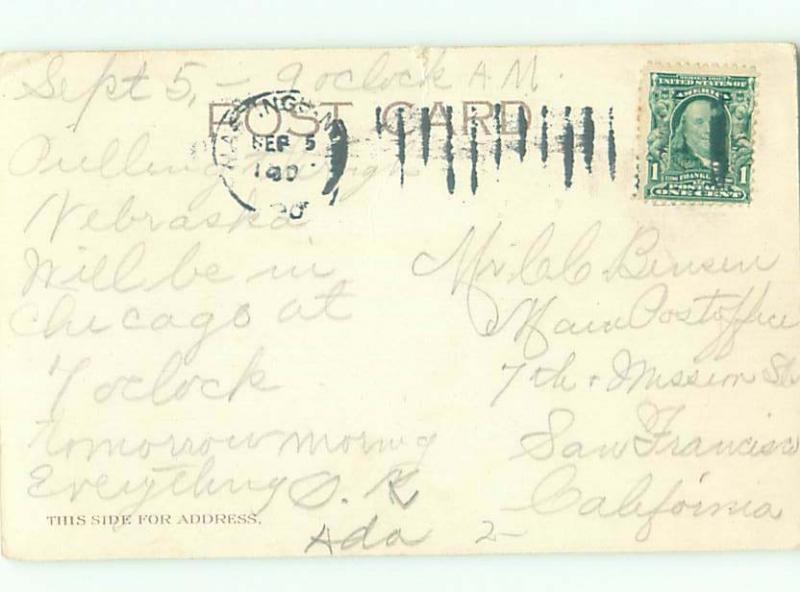 Sept 5, - 9 oclock A.M.
POST CARD
SEP 5
Pulling through
Nebraska
will be in
Chicago at
7 oclock
tomorrow morning
Everything O.K
Ada 2-
THIS SIDE FOR ADDRESS.
SERIES 1902
UNITED STATES OF
AMERICA
FRANKLIN
1 POSTAGE 1
ONE CENT
Mr C C Bensen
Main Postoffice
7th + Mission St
San Francisco
California